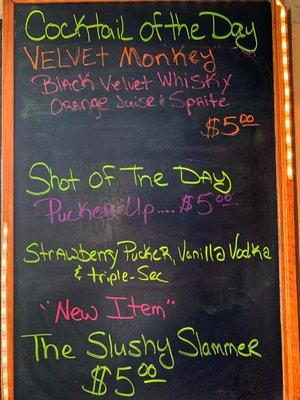 Cocktail of the Day
Velvet Monkey
Black Velvet Whisky
Orange Juise & Sprite
$5.00
Shot of The Day
Pucker Up.... $5.00
Strawberry Pucker, Vanilla Vodka
& triple-Sec
"New Item"
The Slushy Slammer
$5.00